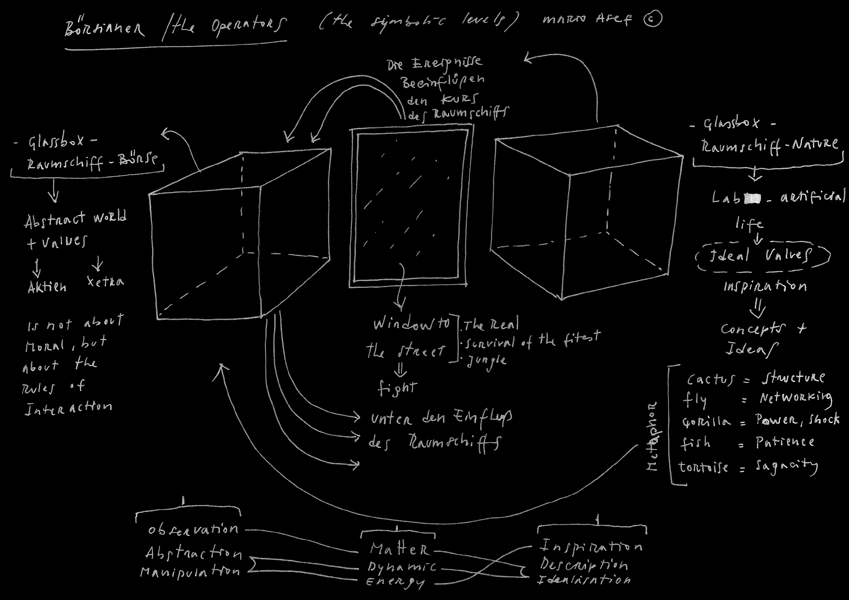 Börsianer / the Operators (the symbolic levels) mario Asef ©
Die Ereignisse
Beeinflußen
den Kurs
des Raumschiffs
- Glassbox -
Raumschiff-Börse
Abstract world
+ values
Aktien Xetra
Is not about
Moral, but
about the
Rules of
Interaction
window to
the street
fight
. The Real
. Survival of the fitest
. Jungle
unter den Einfluß
des Raumschiffs
- Glassbox -
Raumschiff-Nature
Lab - artificial
life
Ideal Values
Inspiration
Concepts +
Ideas
Metaphor
cactus = structure
fly = Networking
Gorilla = Power, shock
fish = Patience
tortoise = sagacity
Observation
Abstraction
Manipulation
Matter
Dynamic
Energy
Inspiration
Description
Idealisation